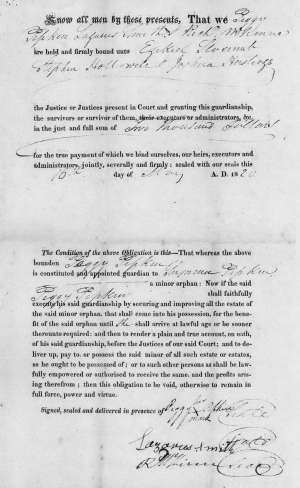 Know all men by these presents, That we Peggy
Pipkin Lazarus Smith & Rich. McKinne
are held and firmly bound unto Ezekiel Slocumb
Stephen Hollowell & Joshua Hastings
the Justice or Justices present in Court and granting this guardianship,
the survivors or survivor of them, their executors or administrators, &c.
in the just and full sum of Two thousand Dollars
for the true payment of which we bind ourselves, our heirs, executors and
administrators, jointly, severally and firmly; sealed with our seals this
day of May A. D. 182
The Condition of the above Obligation is this—That whereas the above
bounden Peggy Pipkin
is constituted and appointed guardian to Pipkin
a minor orphan: Now if the said
Peggy Pipkin shall faithfully
execute his said guardianship by securing and improving all the estate of
the said minor orphan, that shall come into his possession, for the bene-
fit of the said orphan until he shall arrive at lawful age or be sooner
thereunto required: and then to render a plain and true account, on oath,
of his said guardianship, before the Justices of our said Court; and to de-
liver up, pay to, or possess the said minor of all such estate or estates,
as he ought to be possessed of; or to such other persons as shall be law-
fully empowered or authorised to receive the same, and the profits aris-
ing therefrom; then this obligation to be void, otherwise to remain in
full force, power and virtue.
Signed, sealed and delivered in presence of Peggy Pipkin
mark
Lazarus Smith